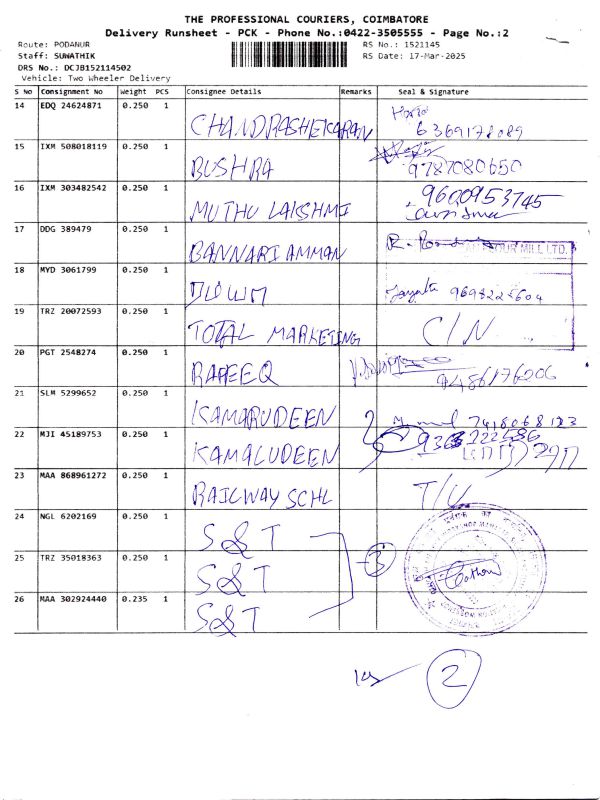 THE PROFESSIONAL COURIERS, COIMBATORE
Delivery Runsheet - PCK - Phone No.:0422-3505555 - Page No.:2
Route: PODANUR RS No.: 1521145
Staff: SUWATHIK RS Date: 17-Mar-2025
DRS No.: DCJB152114502
Vehicle: Two Wheeler Delivery
S No Consignment No Weight PCS Consignee Details Remarks Seal & Signature
14 EDQ 24624871 0.250 1 CHANDRASHEKARAN 6369178089
15 IXM 508018119 0.250 1 BUSHRA 9787080650
16 IXM 303482542 0.250 1 MUTHU LAKSHMI 9600953745
17 DDG 389479 0.250 1 BANNARI AMMAN FLOUR MILL LTD.
18 MYD 3061799 0.250 1
19 TRZ 20072593 0.250 1 TOTAL MARKETING C/N
20 PGT 2548274 0.250 1 RAFEEQ 9486176206
21 SLM 5299652 0.250 1 KAMARUDEEN 7418068123
22 MJI 45189753 0.250 1 KAMALUDEEN
23 MAA 868961272 0.250 1 RAILWAY SCHL
24 NGL 6202169 0.250 1 S&T
25 TRZ 35018363 0.250 1 S&T 3
26 MAA 302924440 0.235 1 S&T
2